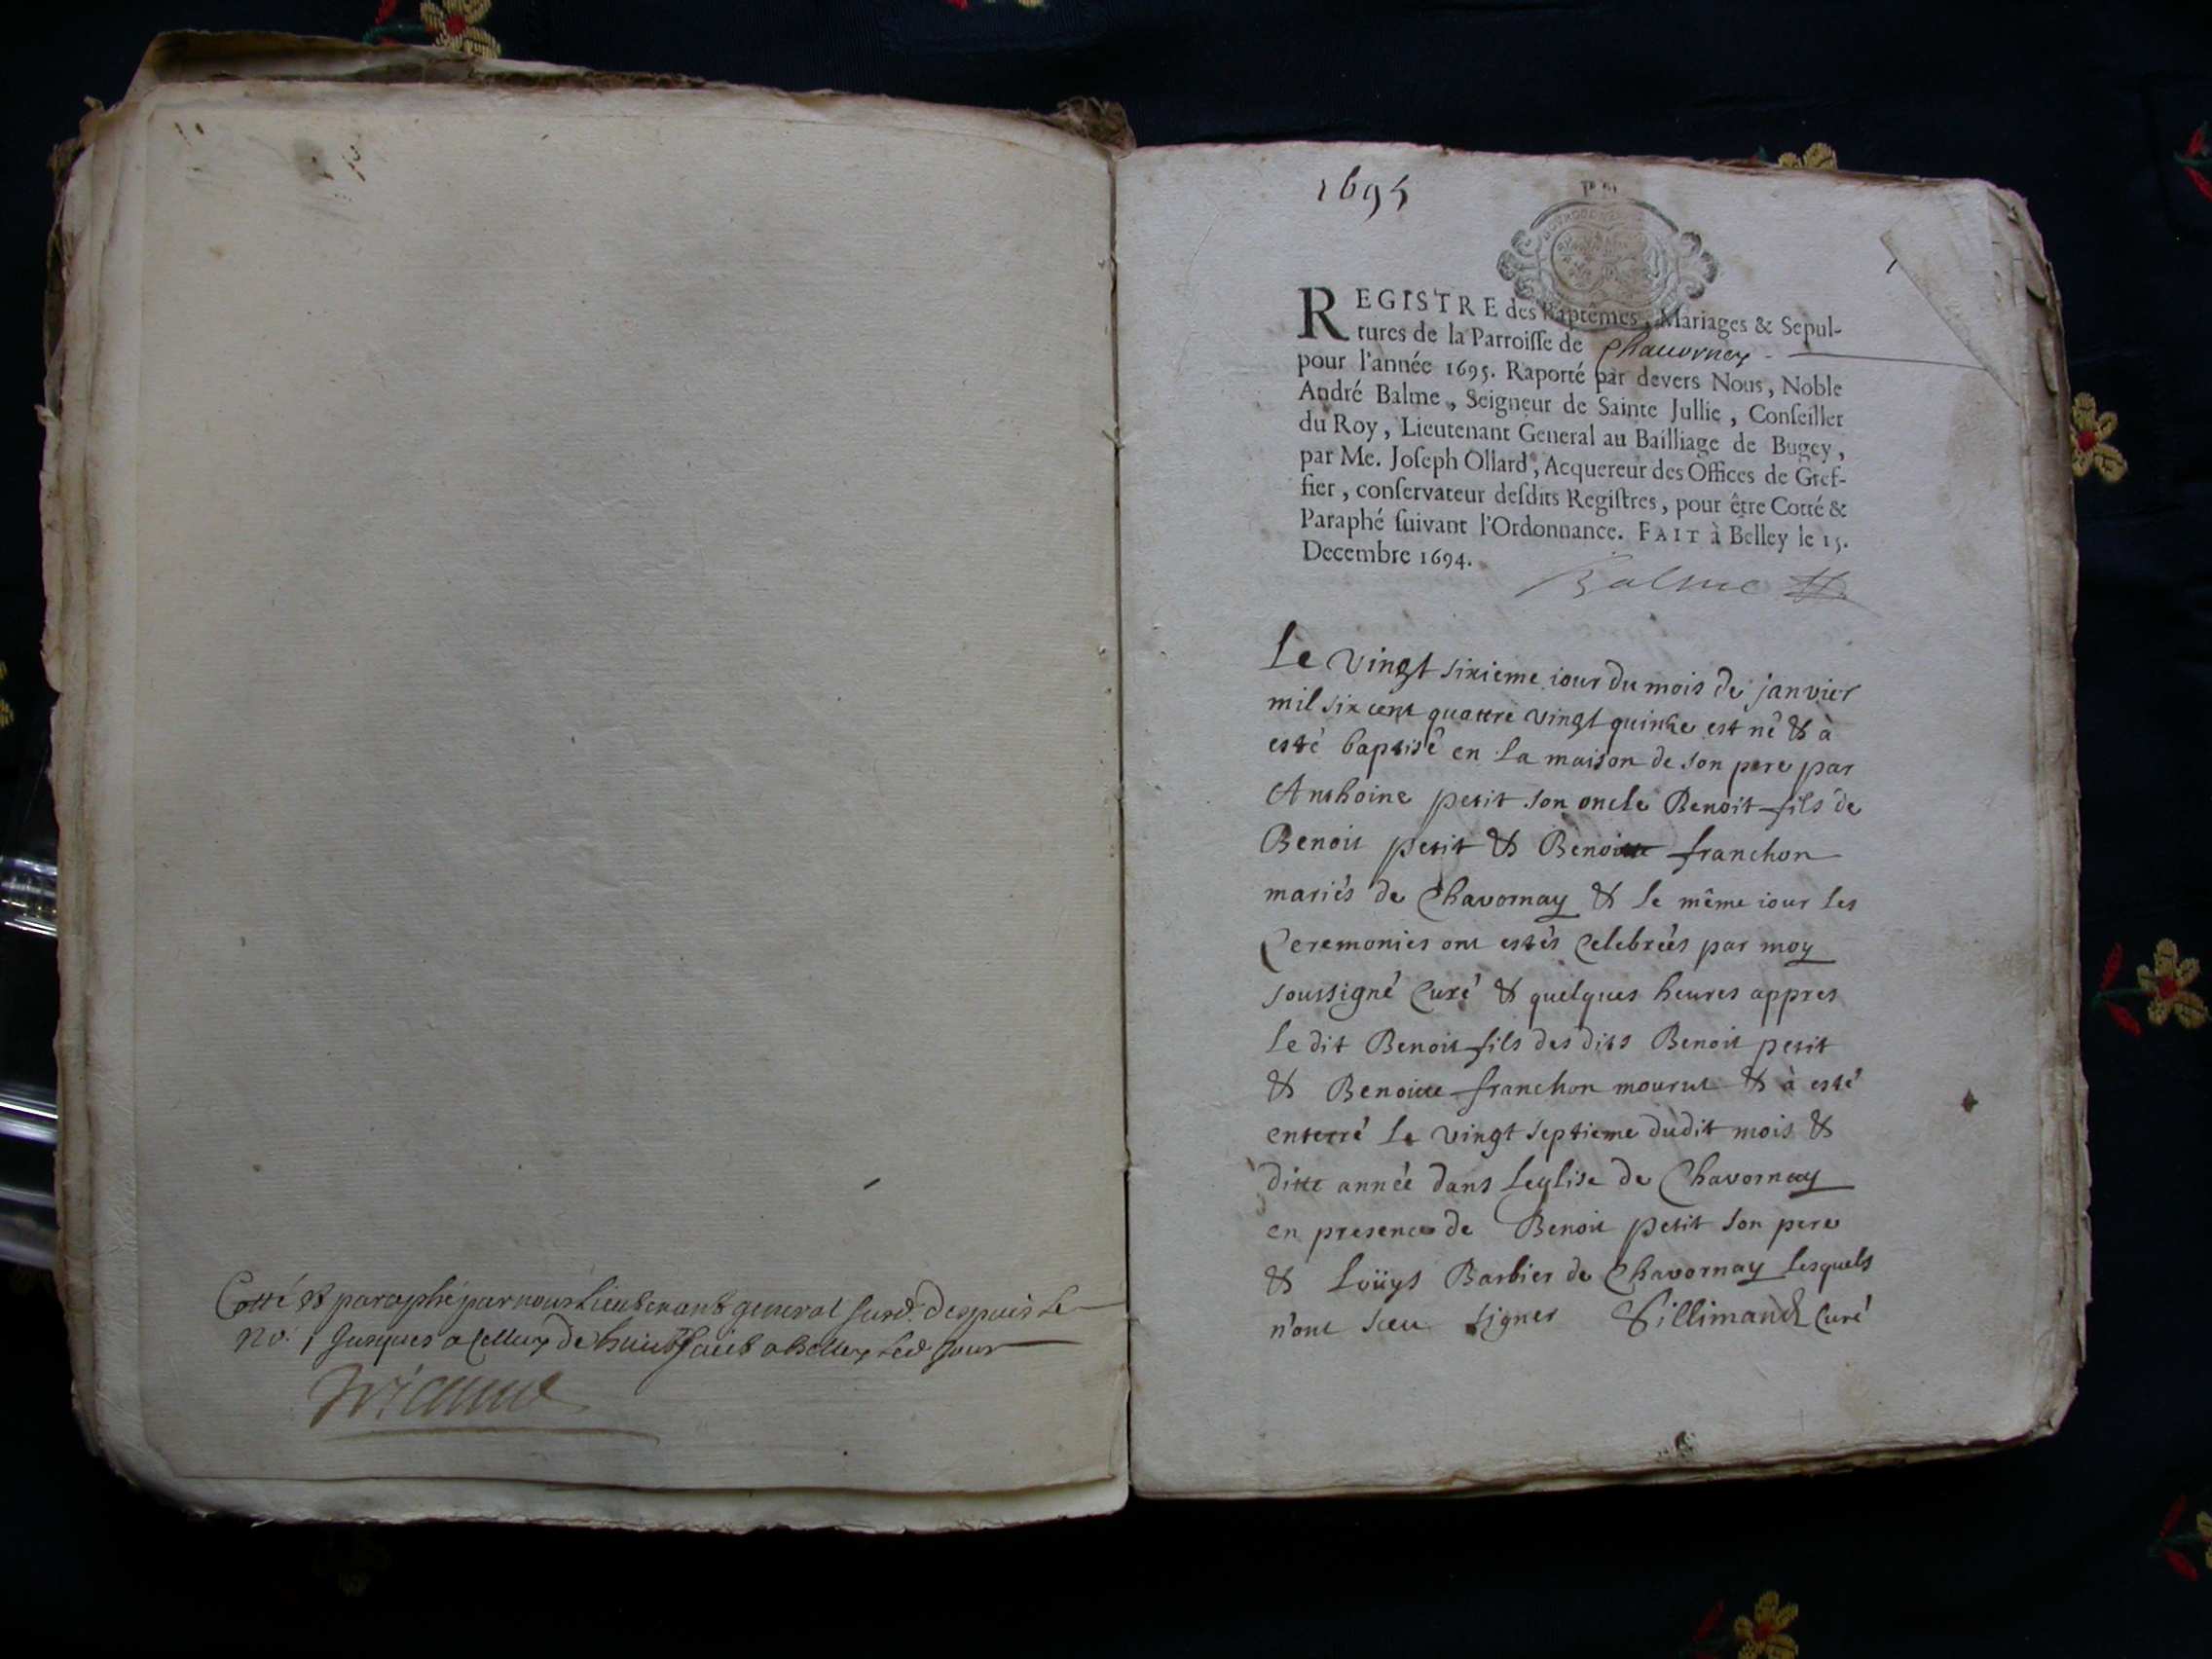 Cotté & paraphé par nous Lieutenant general susd. despuis le
no. 1 jusques a celluy de huict faict a Belley led jour
1695
REGISTRE des Baptêmes, Mariages & Sepul-
tures de la Parroisse de Chavornay
pour l'année 1695. Raporté par devers Nous, Noble
André Balme, Seigneur de Sainte Jullie, Conseiller
du Roy, Lieutenant General au Bailliage de Bugey,
par Me. Joseph Ollard, Acquereur des Offices de Gref-
fier, conservateur desdits Registres, pour être Cotté &
Paraphé suivant l'Ordonnance. FAIT à Belley le 15.
Decembre 1694.
Balme
Le vingt sixieme iour du mois de janvier
mil six cent quattre vingt quinze est né & à
esté baptisé en la maison de son pere par
Anthoine petit son oncle Benoit fils de
Benoit petit & Benoitte franchon
mariés de Chavornay & le même iour les
Ceremonies ont estés Celebrées par moy
soussigné Curé & quelques heures appres
le dit Benoit fils des dits Benoit petit
& Benoitte franchon mourut & à esté
enterré le vingt septieme dudit mois &
ditte année dans Leglise de Chavornay
en presence de Benoit petit son pere
& Loüys Barbier de Chavornay lesquels
n'ont sceu signer Sillimand Curé